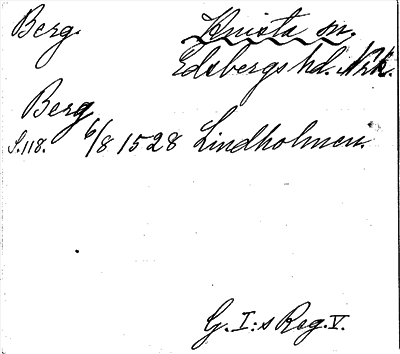 Berg. Knista sn.
Edsbergs hd. Nrk.
Berg
S.118. 6/8 1528 Lindholmen.
G. I:s Reg. V.